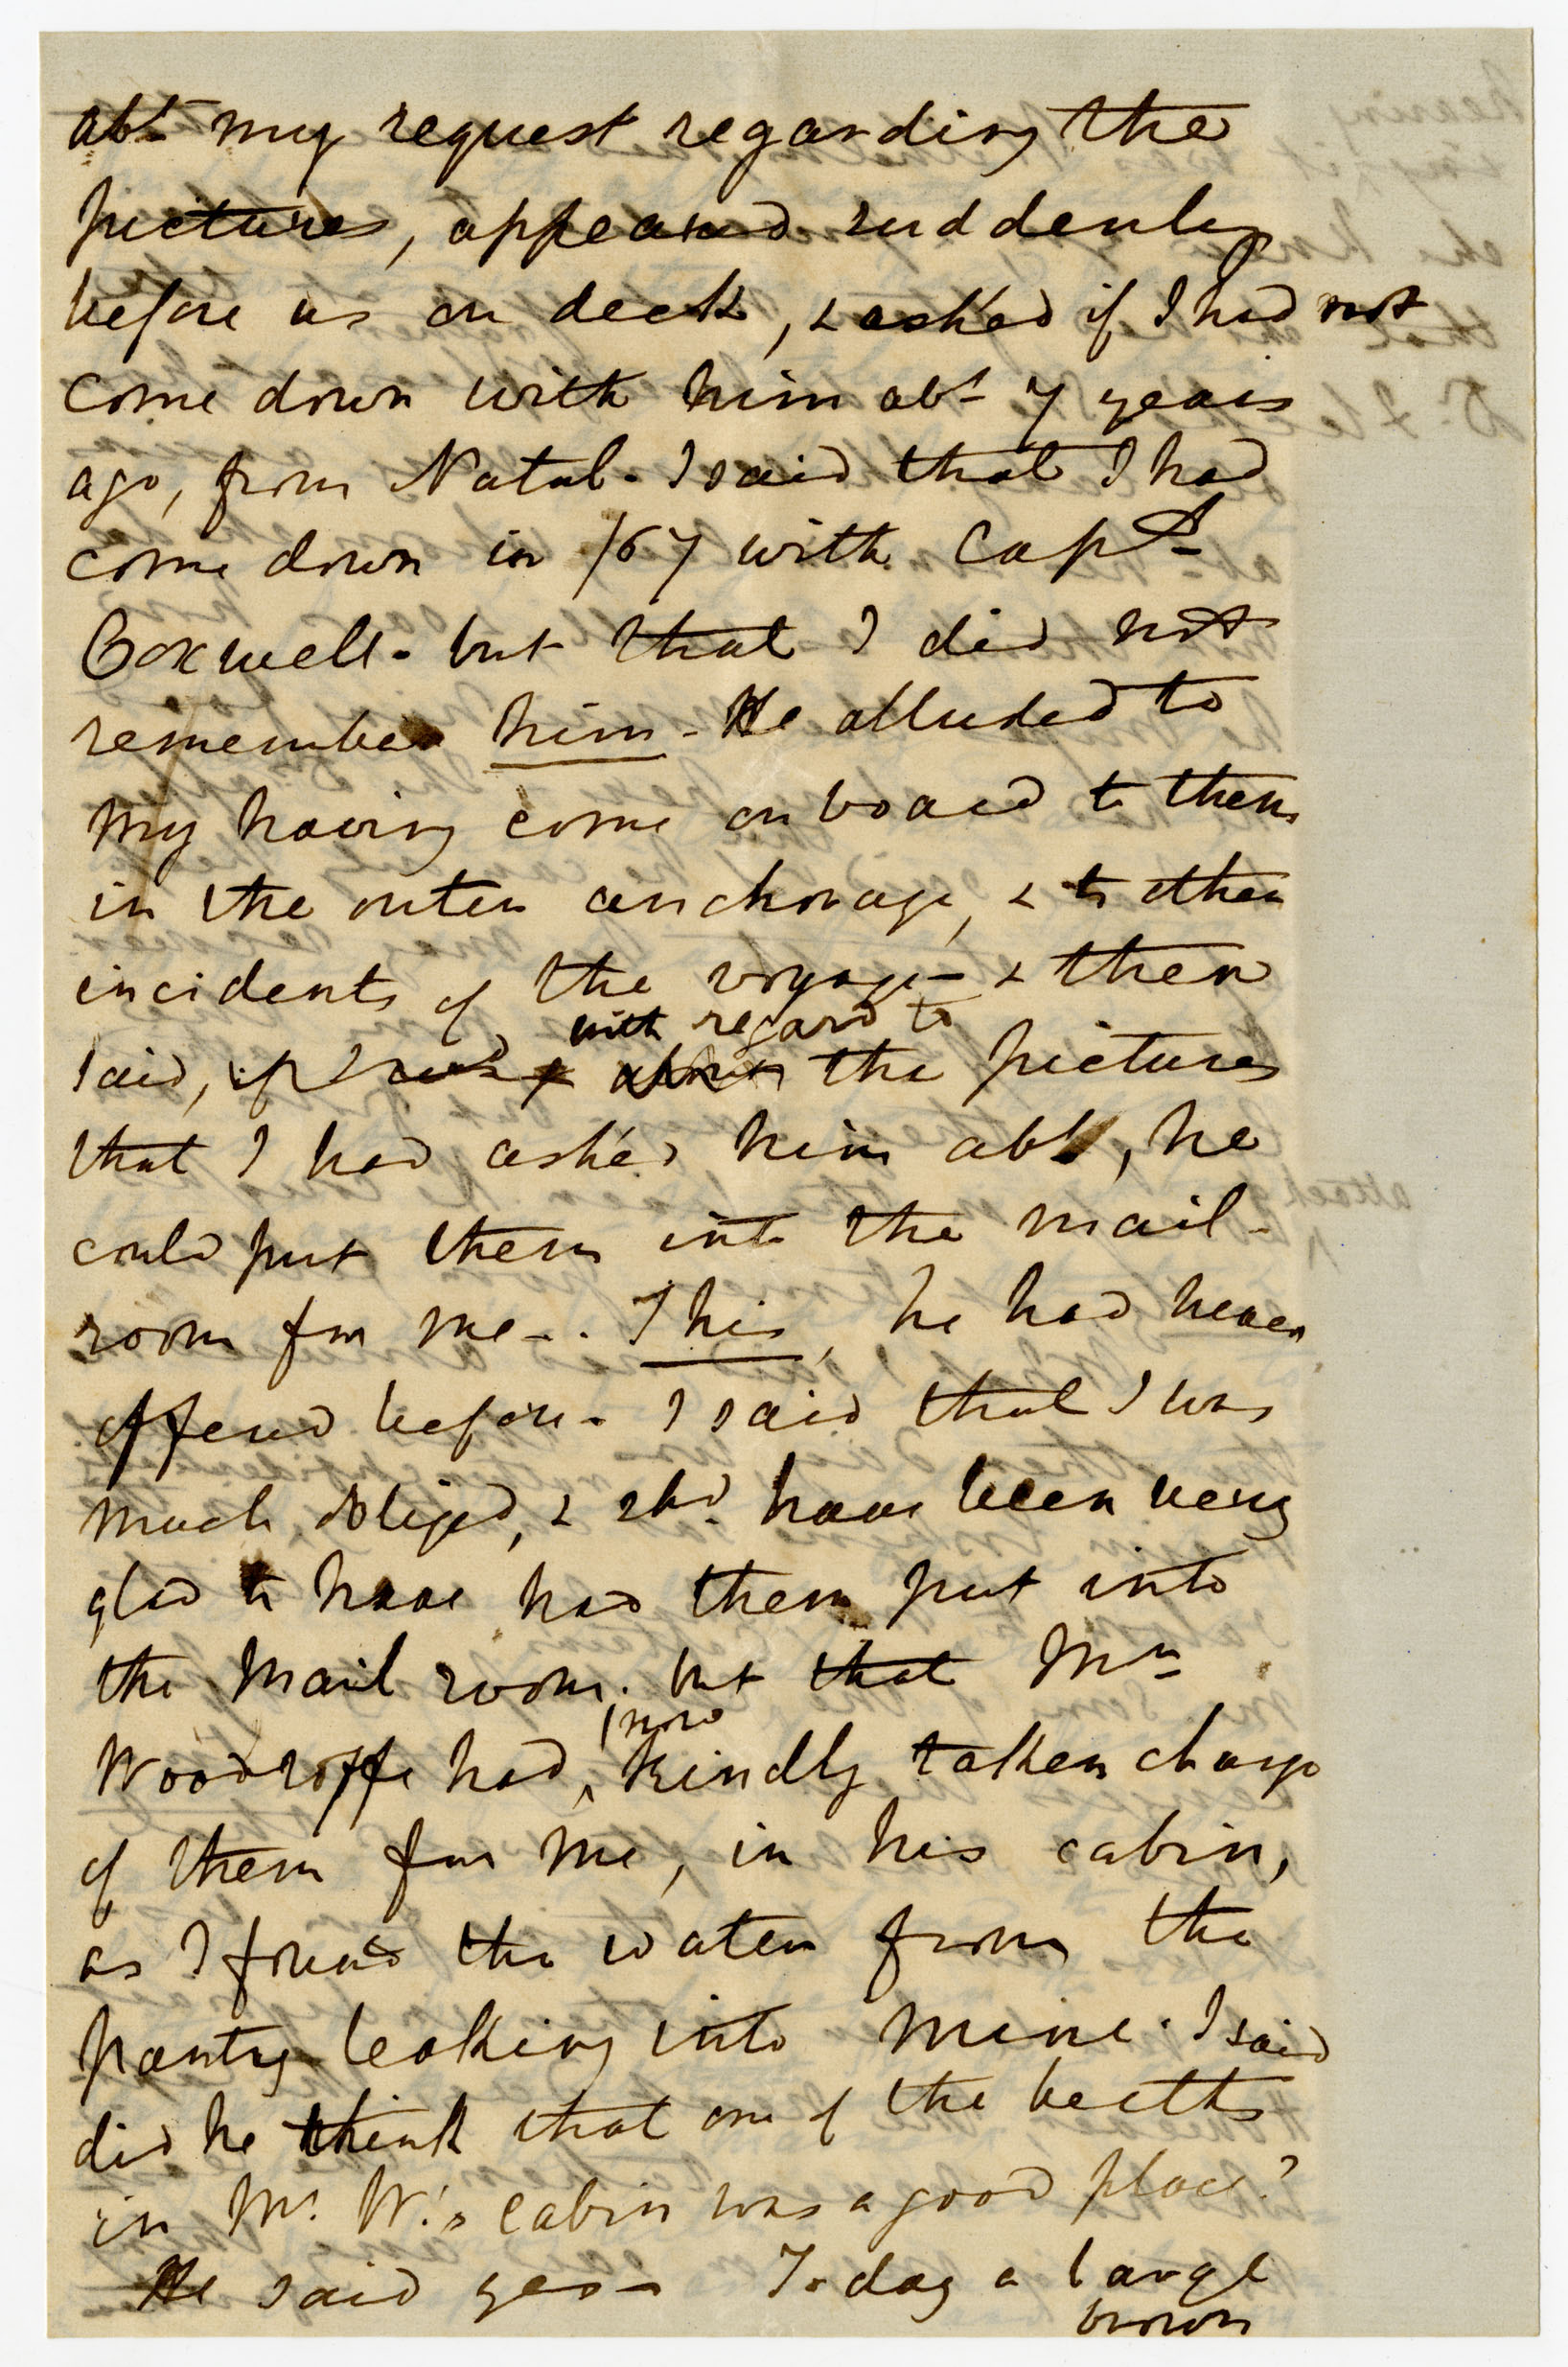 abt my request regarding the
pictures, appeared suddenly
before us on deck, & asked if I had not
come down with him abt 7 years
ago, from Natal. I said that I had
come down in /67 with Capt
Coxwell. but that I did not
remember him. He alluded to
my having come on board to them
in the outer anchorage, & to other
incidents of the voyage - & then
with regard to
said, the pictures
that I had asked him abt, he
could put them into the mail-
room for me -. This, he had never
offered before. I said that I was
much obliged, & shd. have been very
glad to have had them put into
the Mail room. but that Mr
now
Woodroffe had, kindly taken charge
of them for me, in his cabin,
as I found the water from the
pantry leaking into mine. I said
did he think that one of the berths
in Mr. W.'s cabin was a good place?
He said yes - Today a large
brown